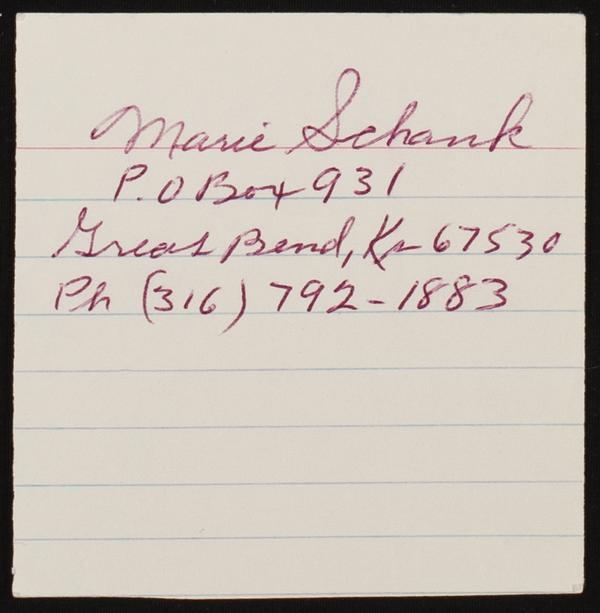 Marie Schank
P.O Box 931
Great Bend, Ks 67530
Ph (316) 792-1883